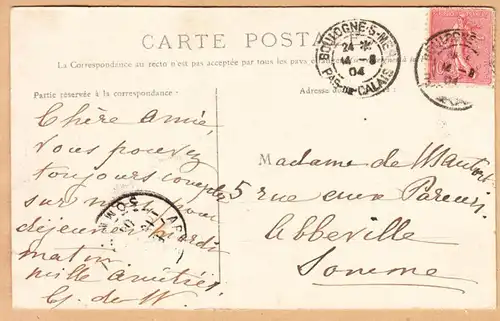 CARTE POSTALE
La Correspondance au recto n'est pas acceptée par tous les pays
Partie réservée à la correspondance:
Adresse du
BOULOGNE-S-MER
24
14-8
04
PAS-DE-CALAIS
14-8
04
Chère Amie,
Vous pouvez
toujours compter
sur moi pour
déjeuner mardi
matin
mille amitiés
G. de W.
Madame de
5 rue aux Pareurs
Abbeville
Somme